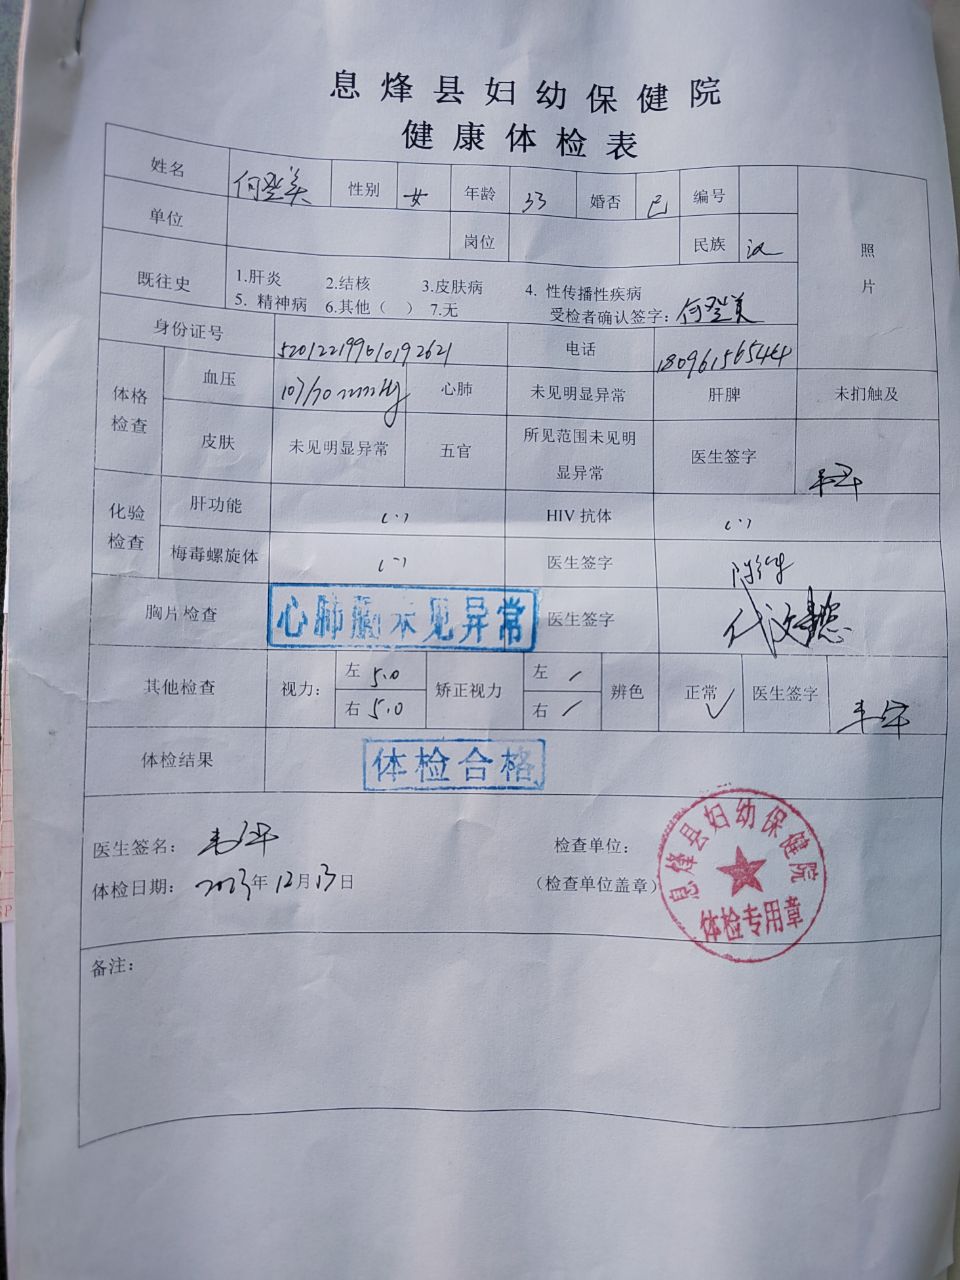 息烽县妇幼保健院
健康体检表
姓名 何登美 性别 女 年龄 33 婚否 已 编号
单位 岗位 民族 汉
照片
既往史 1.肝炎 2.结核 3.皮肤病 4. 性传播性疾病
5. 精神病 6.其他（ ） 7.无 受检者确认签字：何登美
身份证号 电话 18096156544
体格检查 血压 107/70mmHg 心肺 未见明显异常 肝脾 未扪触及
皮肤 未见明显异常 五官 所见范围未见明显异常 医生签字
化验检查 肝功能 (-) HIV 抗体 (-)
梅毒螺旋体 (-) 医生签字
胸片检查 心肺膈未见异常 医生签字
其他检查 视力： 左 5.0 矫正视力 左 / 辨色 正常 ✓ 医生签字
右 5.0 右 /
体检结果 体检合格
医生签名： 检查单位：
体检日期： 2023年 12月 13日 （检查单位盖章）
息烽县妇幼保健院
体检专用章
备注：